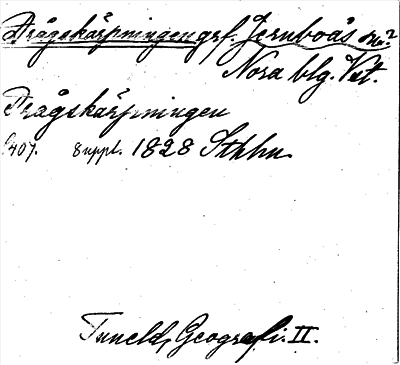 Trågskärpningen grf. Jernboås sn?
Nora blg. Vst.
Trågskärpningen
S407. suppl. 1828 Sthlm
Tuneld, Geografi. II.